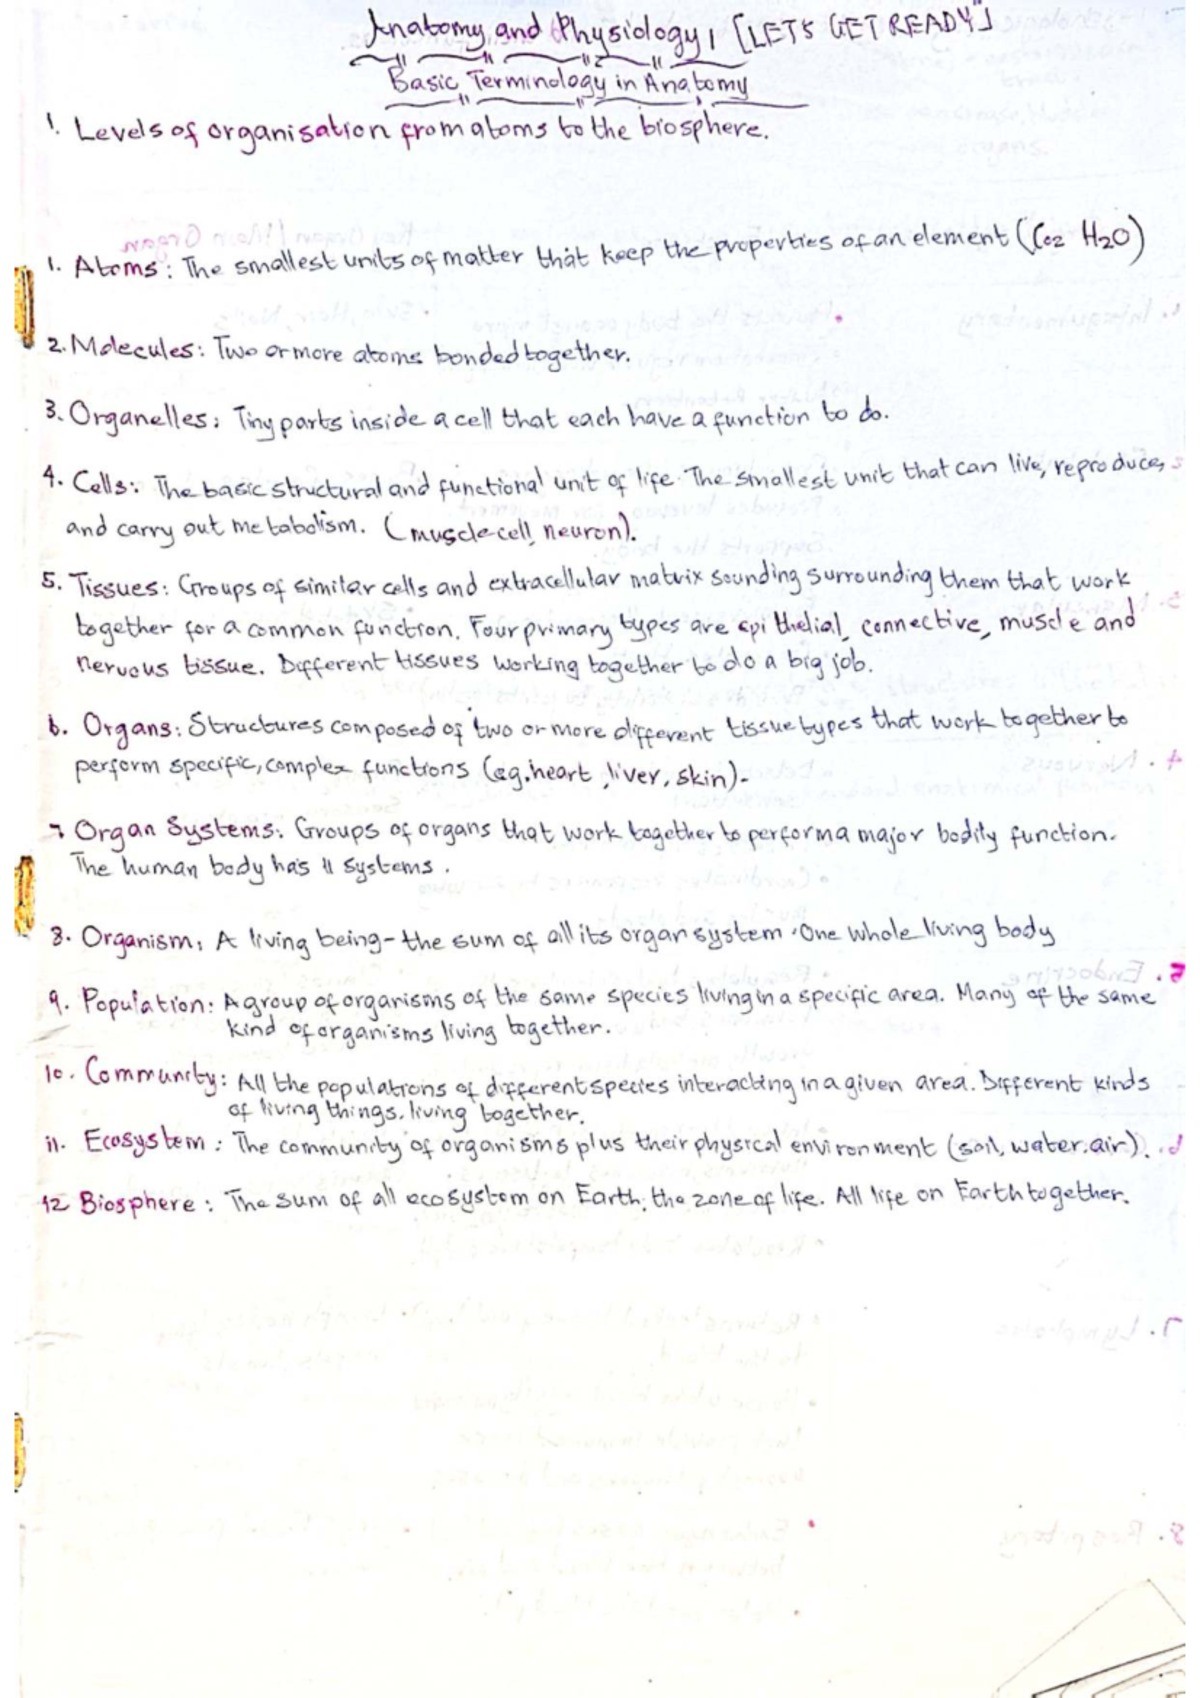 Anatomy and Physiology 1 [LETS GET READY]
Basic Terminology in Anatomy
1. Levels of organisation from atoms to the biosphere.
1. Atoms: The smallest units of matter that keep the properties of an element (Co2 H2O)
2. Molecules: Two or more atoms bonded together.
3. Organelles: Tiny parts inside a cell that each have a function to do.
4. Cells: The basic structural and functional unit of life. The smallest unit that can live, reproduce,
and carry out metabolism. (muscle cell, neuron).
5. Tissues: Groups of similar cells and extracellular matrix sounding surrounding them that work
together for a common function. Four primary types are epithelial, connective, muscle and
nervous tissue. Different tissues working together to do a big job.
6. Organs: Structures composed of two or more different tissue types that work together to
perform specific, complex functions (eg. heart, liver, skin).
7 Organ Systems: Groups of organs that work together to perform a major bodily function.
The human body has 11 systems.
8. Organism: A living being - the sum of all its organ system. One whole living body
9. Population: A group of organisms of the same species living in a specific area. Many of the same
kind of organisms living together.
10. Community: All the populations of different species interacting in a given area. Different kinds
of living things. living together.
11. Ecosystem: The community of organisms plus their physical environment (soil, water. air).
12 Biosphere: The sum of all ecosystem on Earth: the zone of life. All life on Earth together.